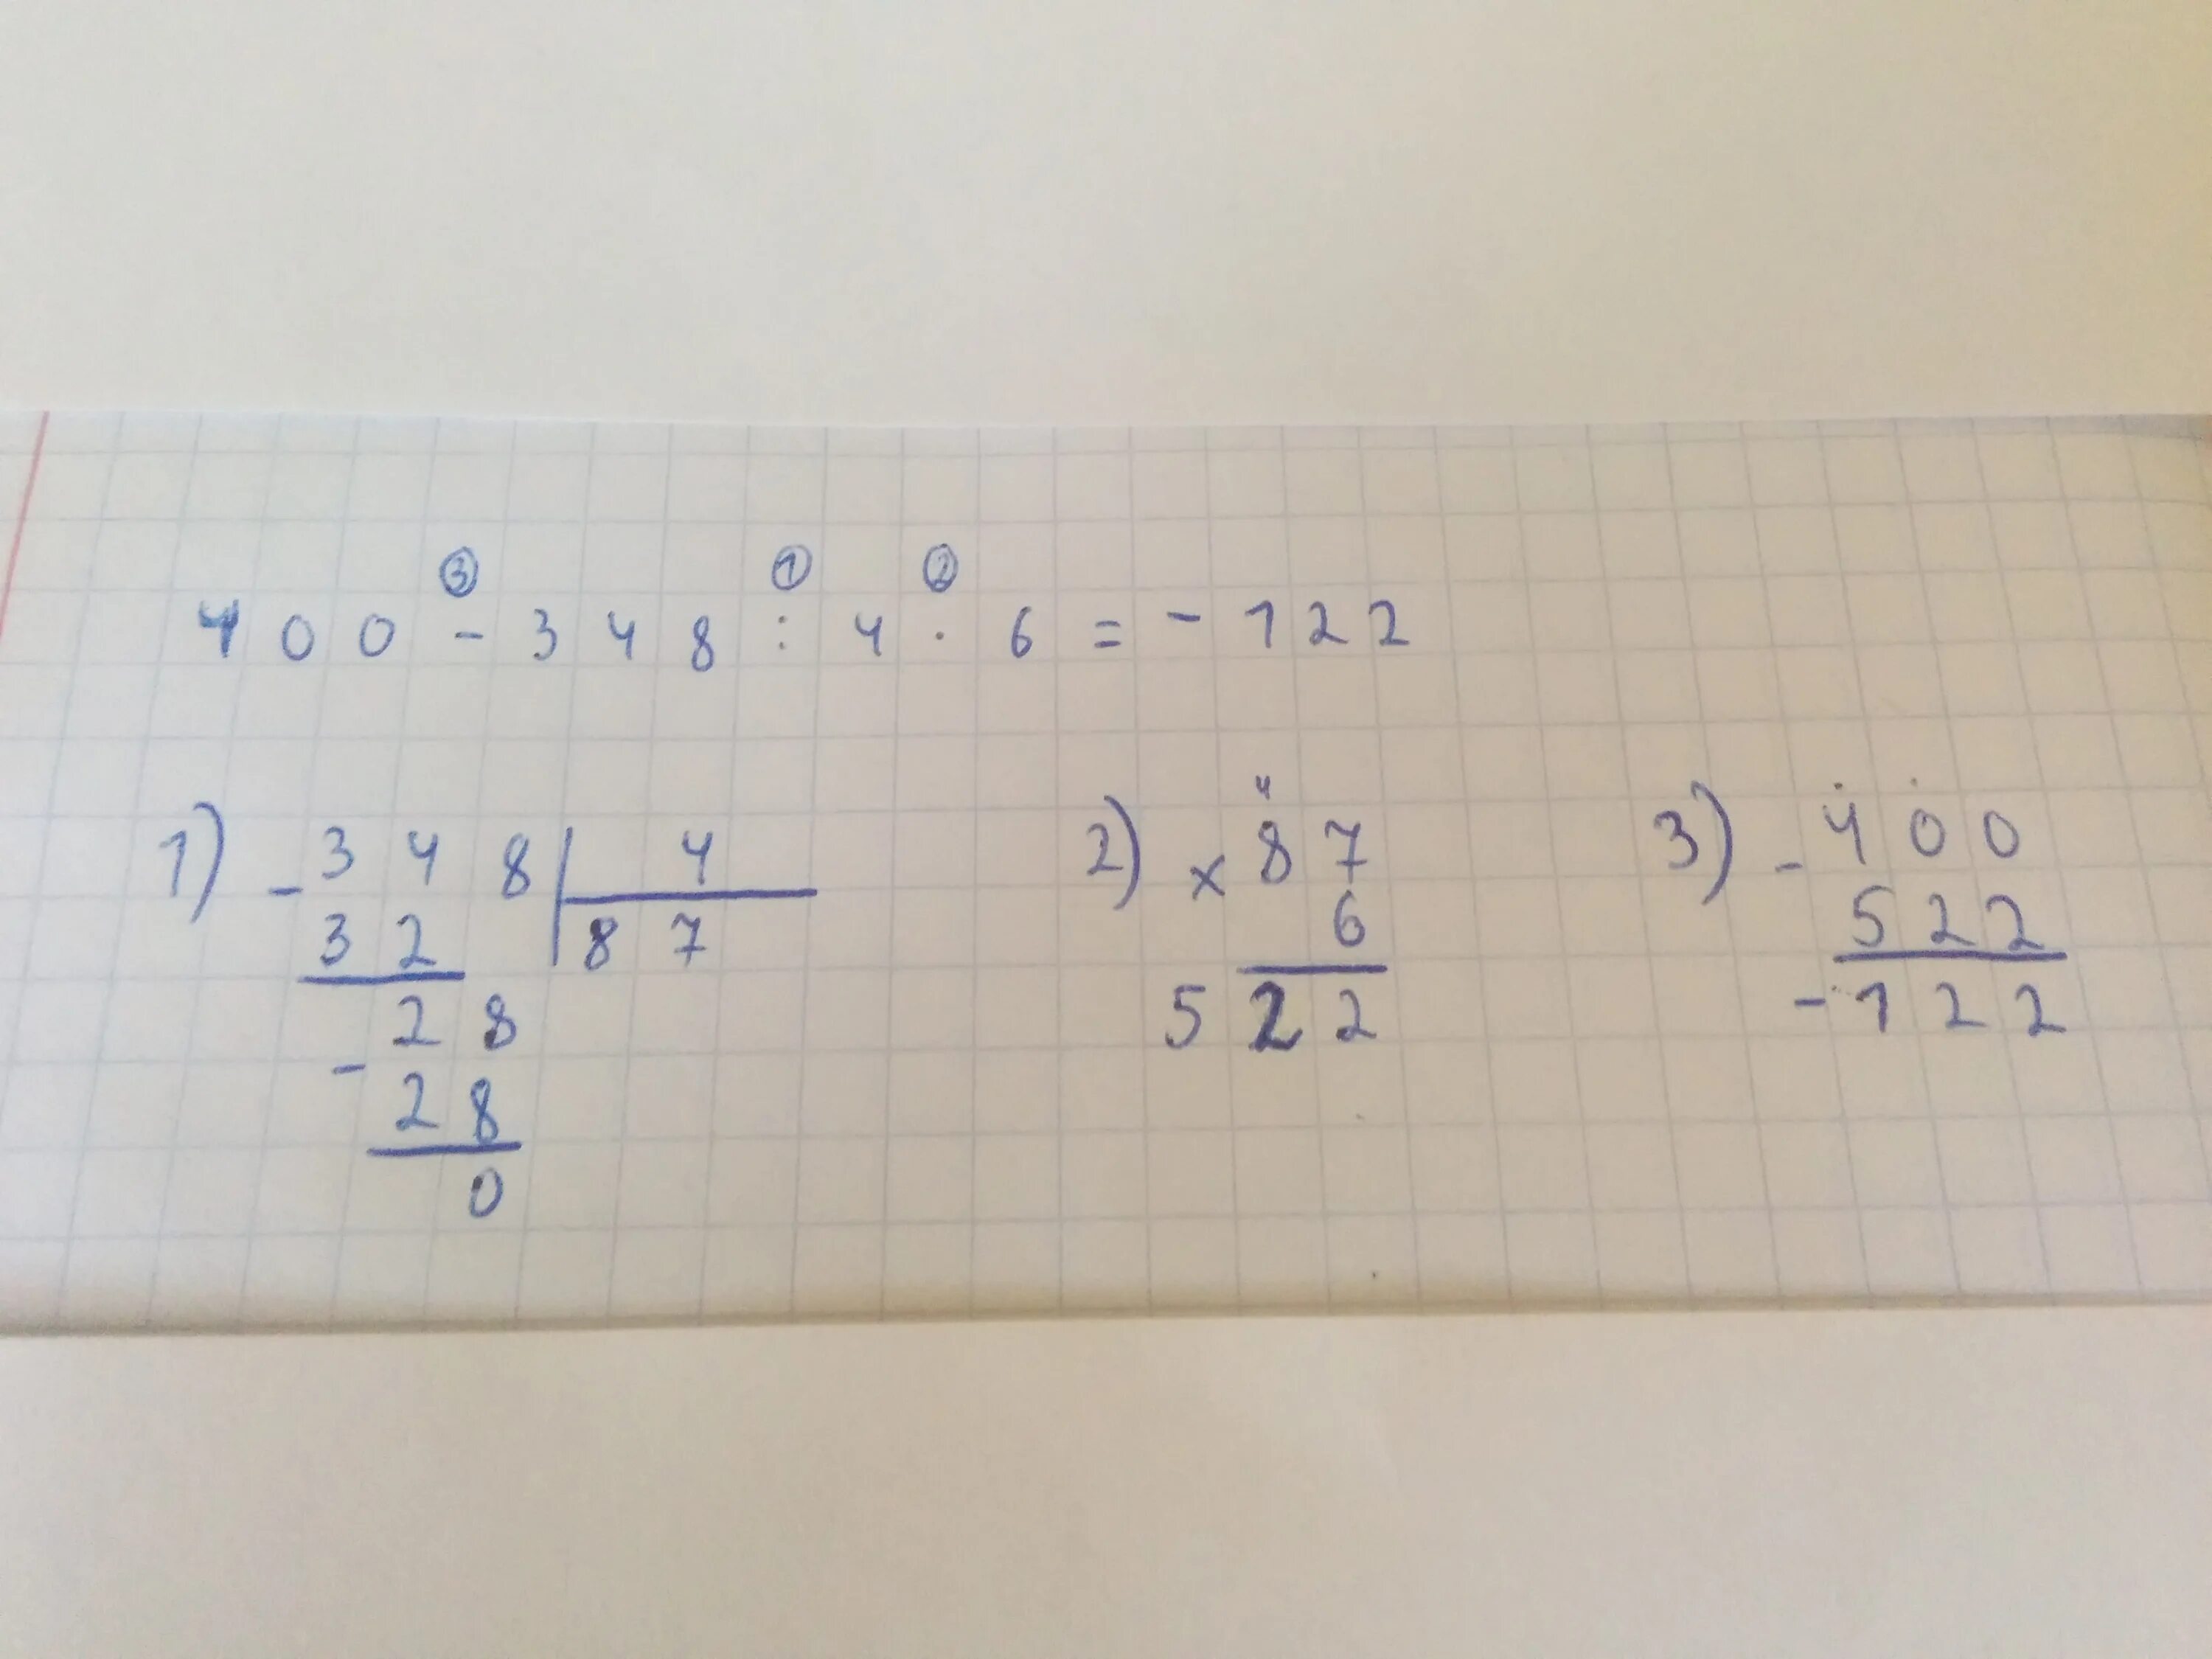 ③ ① ②
400 - 348 : 4 · 6 = - 122
1) - 348 | 4
32 | 87
28
- 28
0
2) 4
× 87
6
522
3) - 400
522
- 122